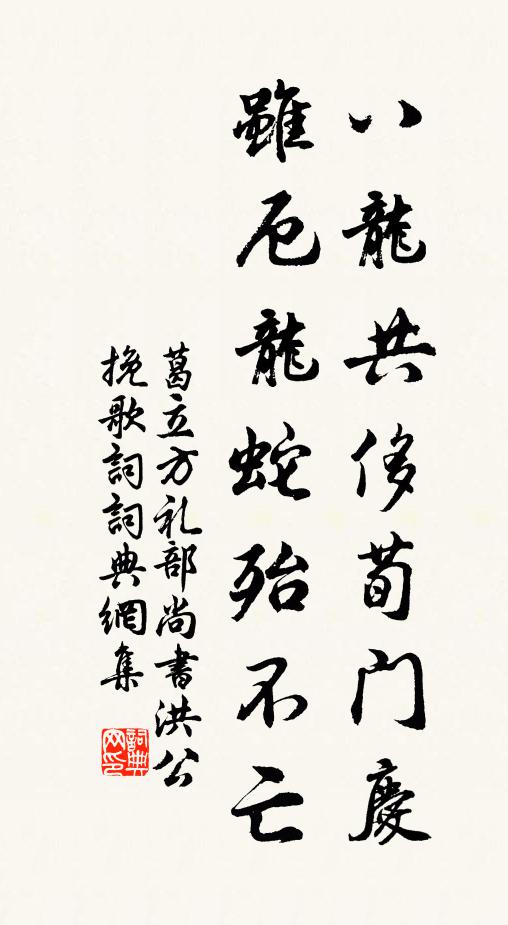 八龍共侈荀門慶
雖厄龍蛇殆不亡
葛立方礼部尚書洪公
挽歌詞詞典網集
詞典
网印